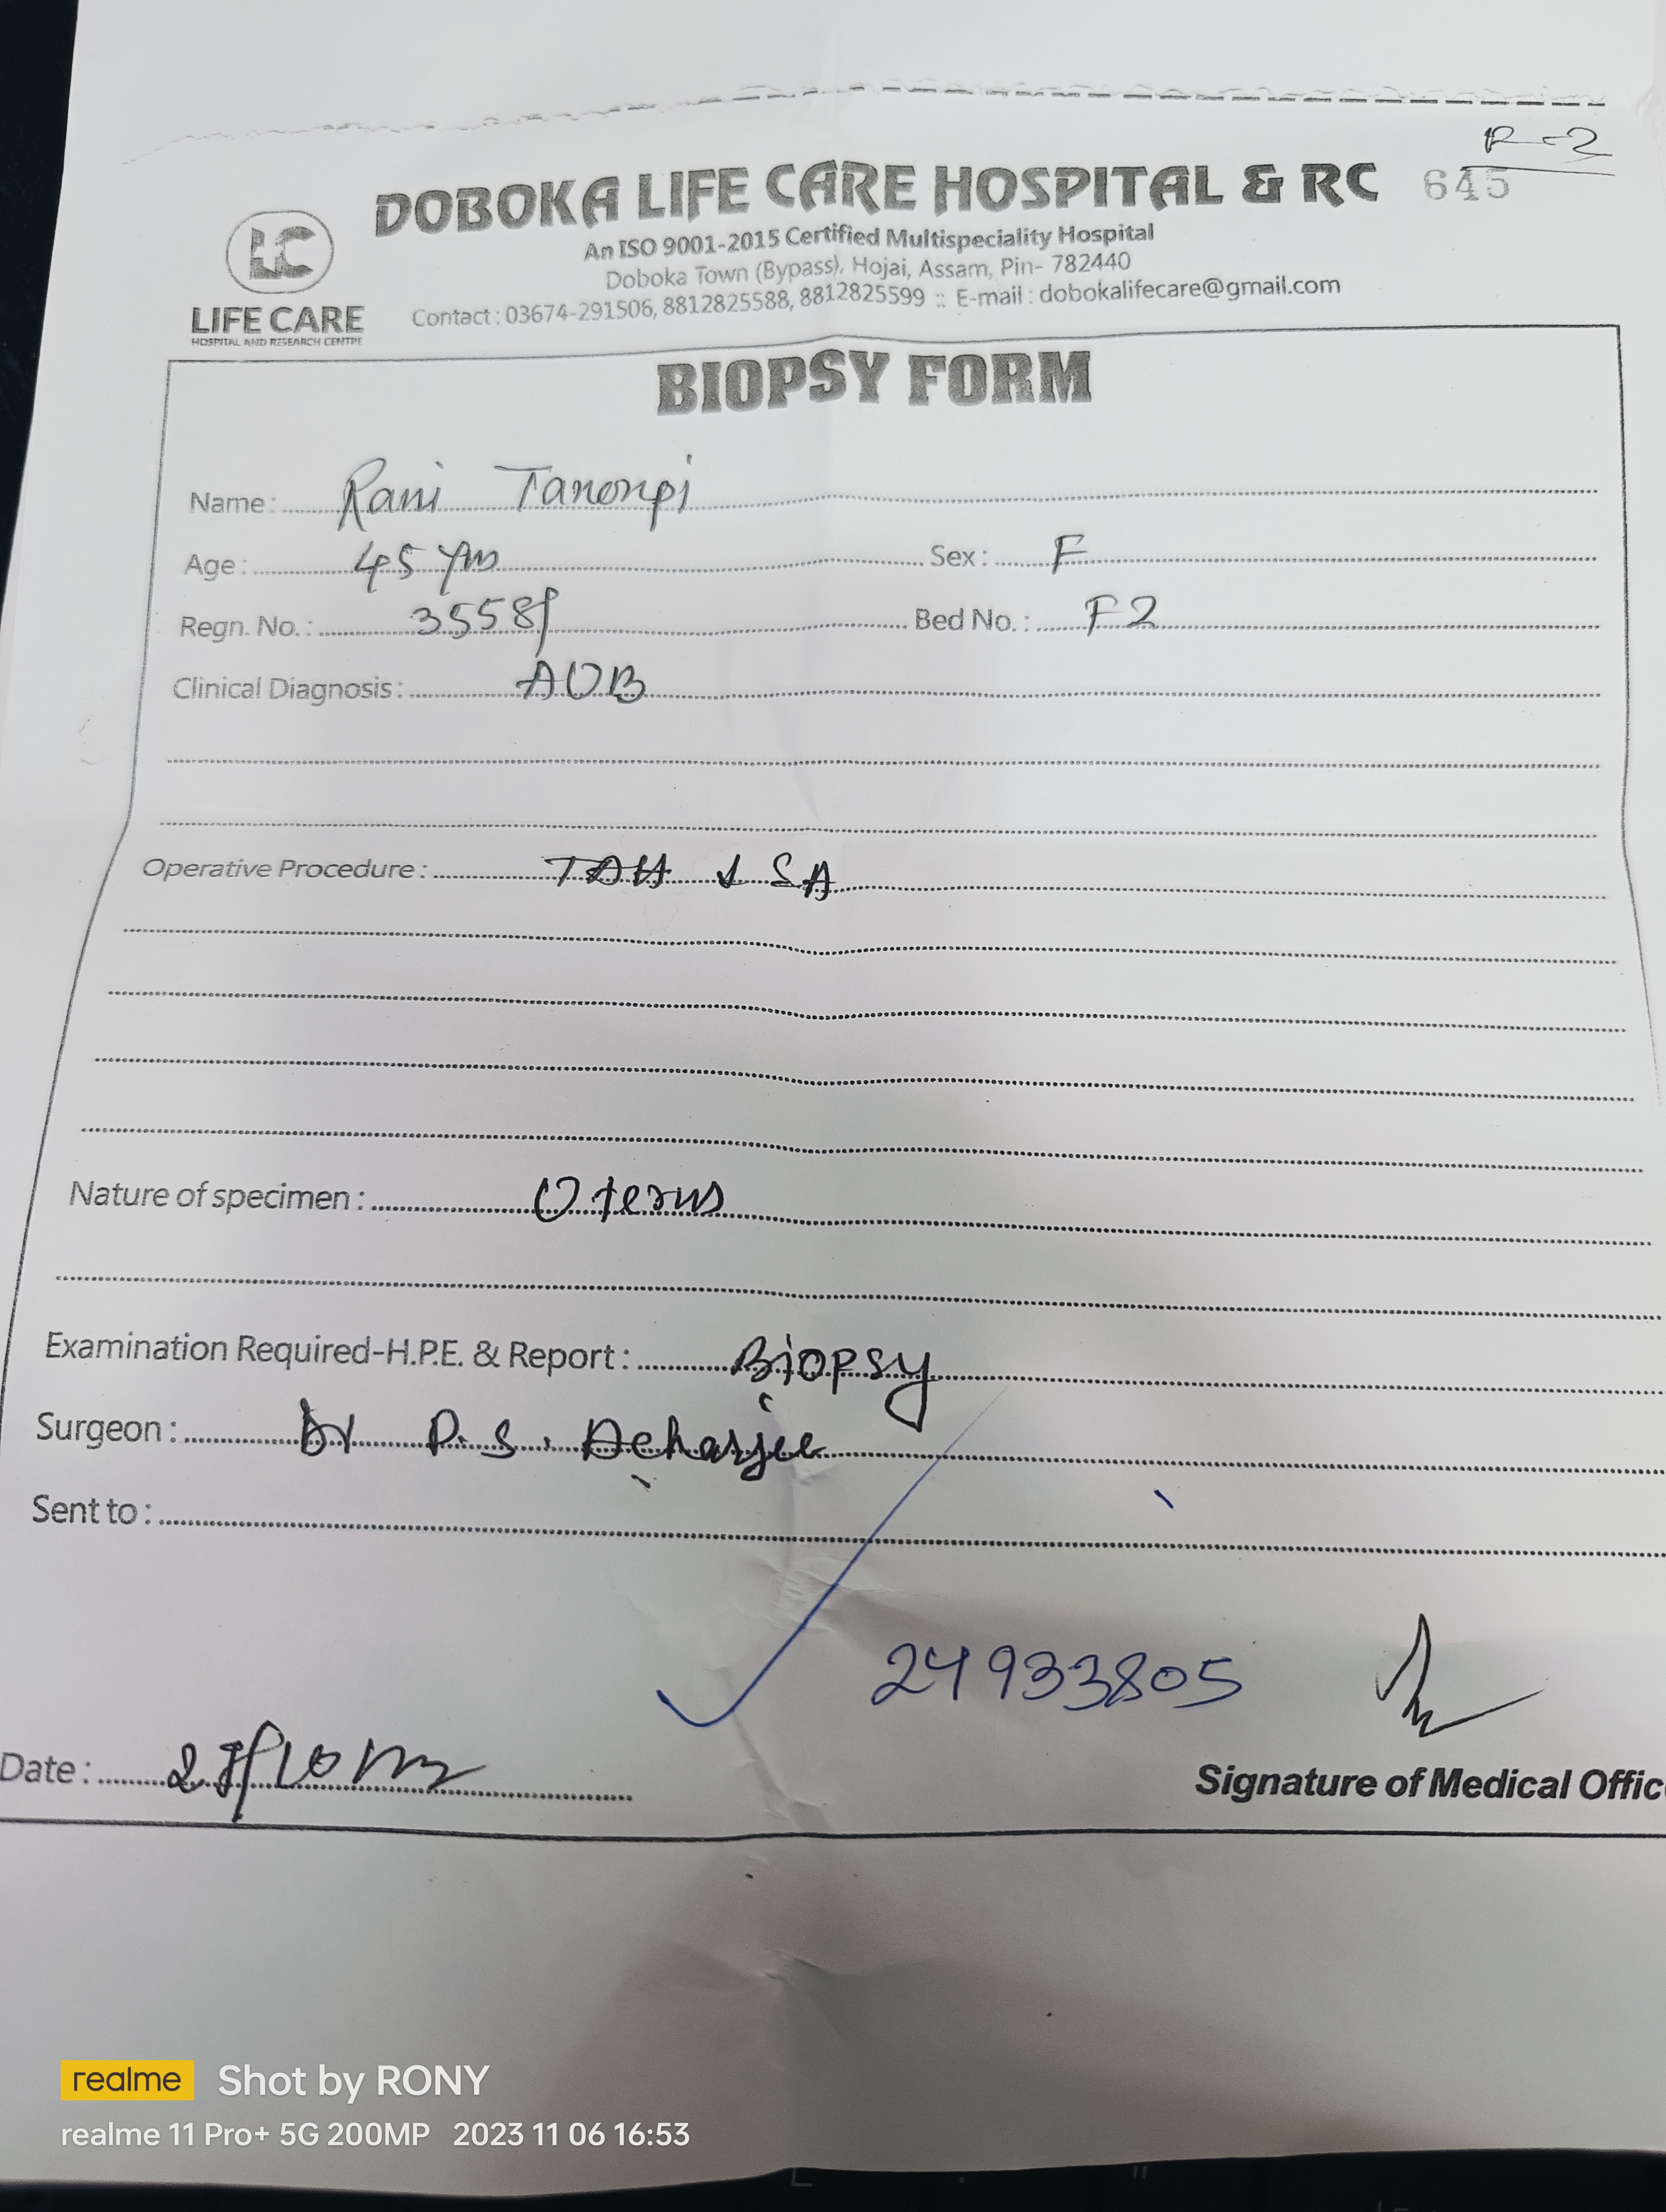 R-2
DOBOKA LIFE CARE HOSPITAL & RC 645
An ISO 9001-2015 Certified Multispeciality Hospital
Doboka Town (Bypass), Hojai, Assam, Pin- 782440
Contact : 03674-291506, 8812825588, 8812825599 :: E-mail : dobokalifecare@gmail.com
LC
LIFE CARE
HOSPITAL AND RESEARCH CENTRE
BIOPSY FORM
Name : Rani
Age : 45 yrs Sex : F
Regn. No. : Bed No. : F2
Clinical Diagnosis : AUB
Operative Procedure : TAH SA
Nature of specimen : Uterus
Examination Required-H.P.E. & Report : Biopsy
Surgeon : Dr P. S.
Sent to :
24933805
Date :
Signature of Medical Offic
realme Shot by RONY
realme 11 Pro+ 5G 200MP 2023 11 06 16:53